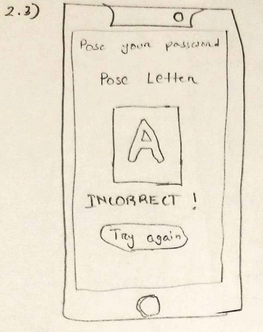 2.3)
Pose your password
Pose Letter
A
INCORRECT !
Try again